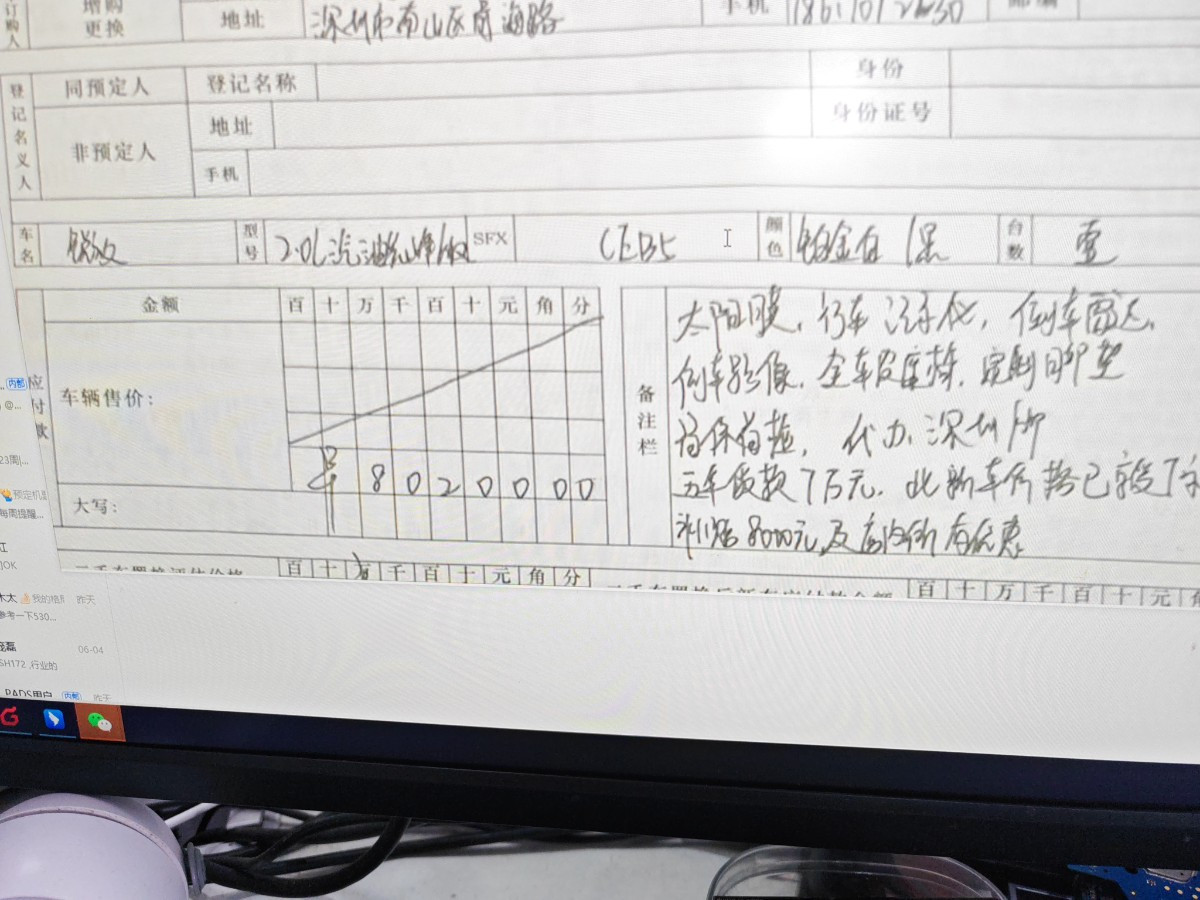 订购人
增购
更换
地址
深圳市南山区前海路
手机
邮编
登记名义人
同预定人
登记名称
身份
非预定人
地址
身份证号
手机
车名
锐放
型号
2.0L汽油尖峰版
SFX
CEB5
颜色
铂金白 黑
台数
壹
金额
百 十 万 千 百 十 元 角 分
应付款
车辆售价:
¥ 8 0 2 0 0 0 0
大写:
备注栏
太阳膜, 行车记录仪, 倒车雷达,
倒车影像, 全车皮座椅, 定制脚垫
代办深圳牌
五年贷款7万元, 此新车价格已
补贴8000元及店内所有优惠
二手车置换评估价格
百 十 万 千 百 十 元 角 分
二手车置换后新车应付款金额
百 十 万 千 百 十 元 角
内部
@...
23周|...
预定机
每周提醒...
江
]OK
木太
昨天
参考一下530...
磊
06-04
SH172 ,行业的
PADS用户
内部
昨天